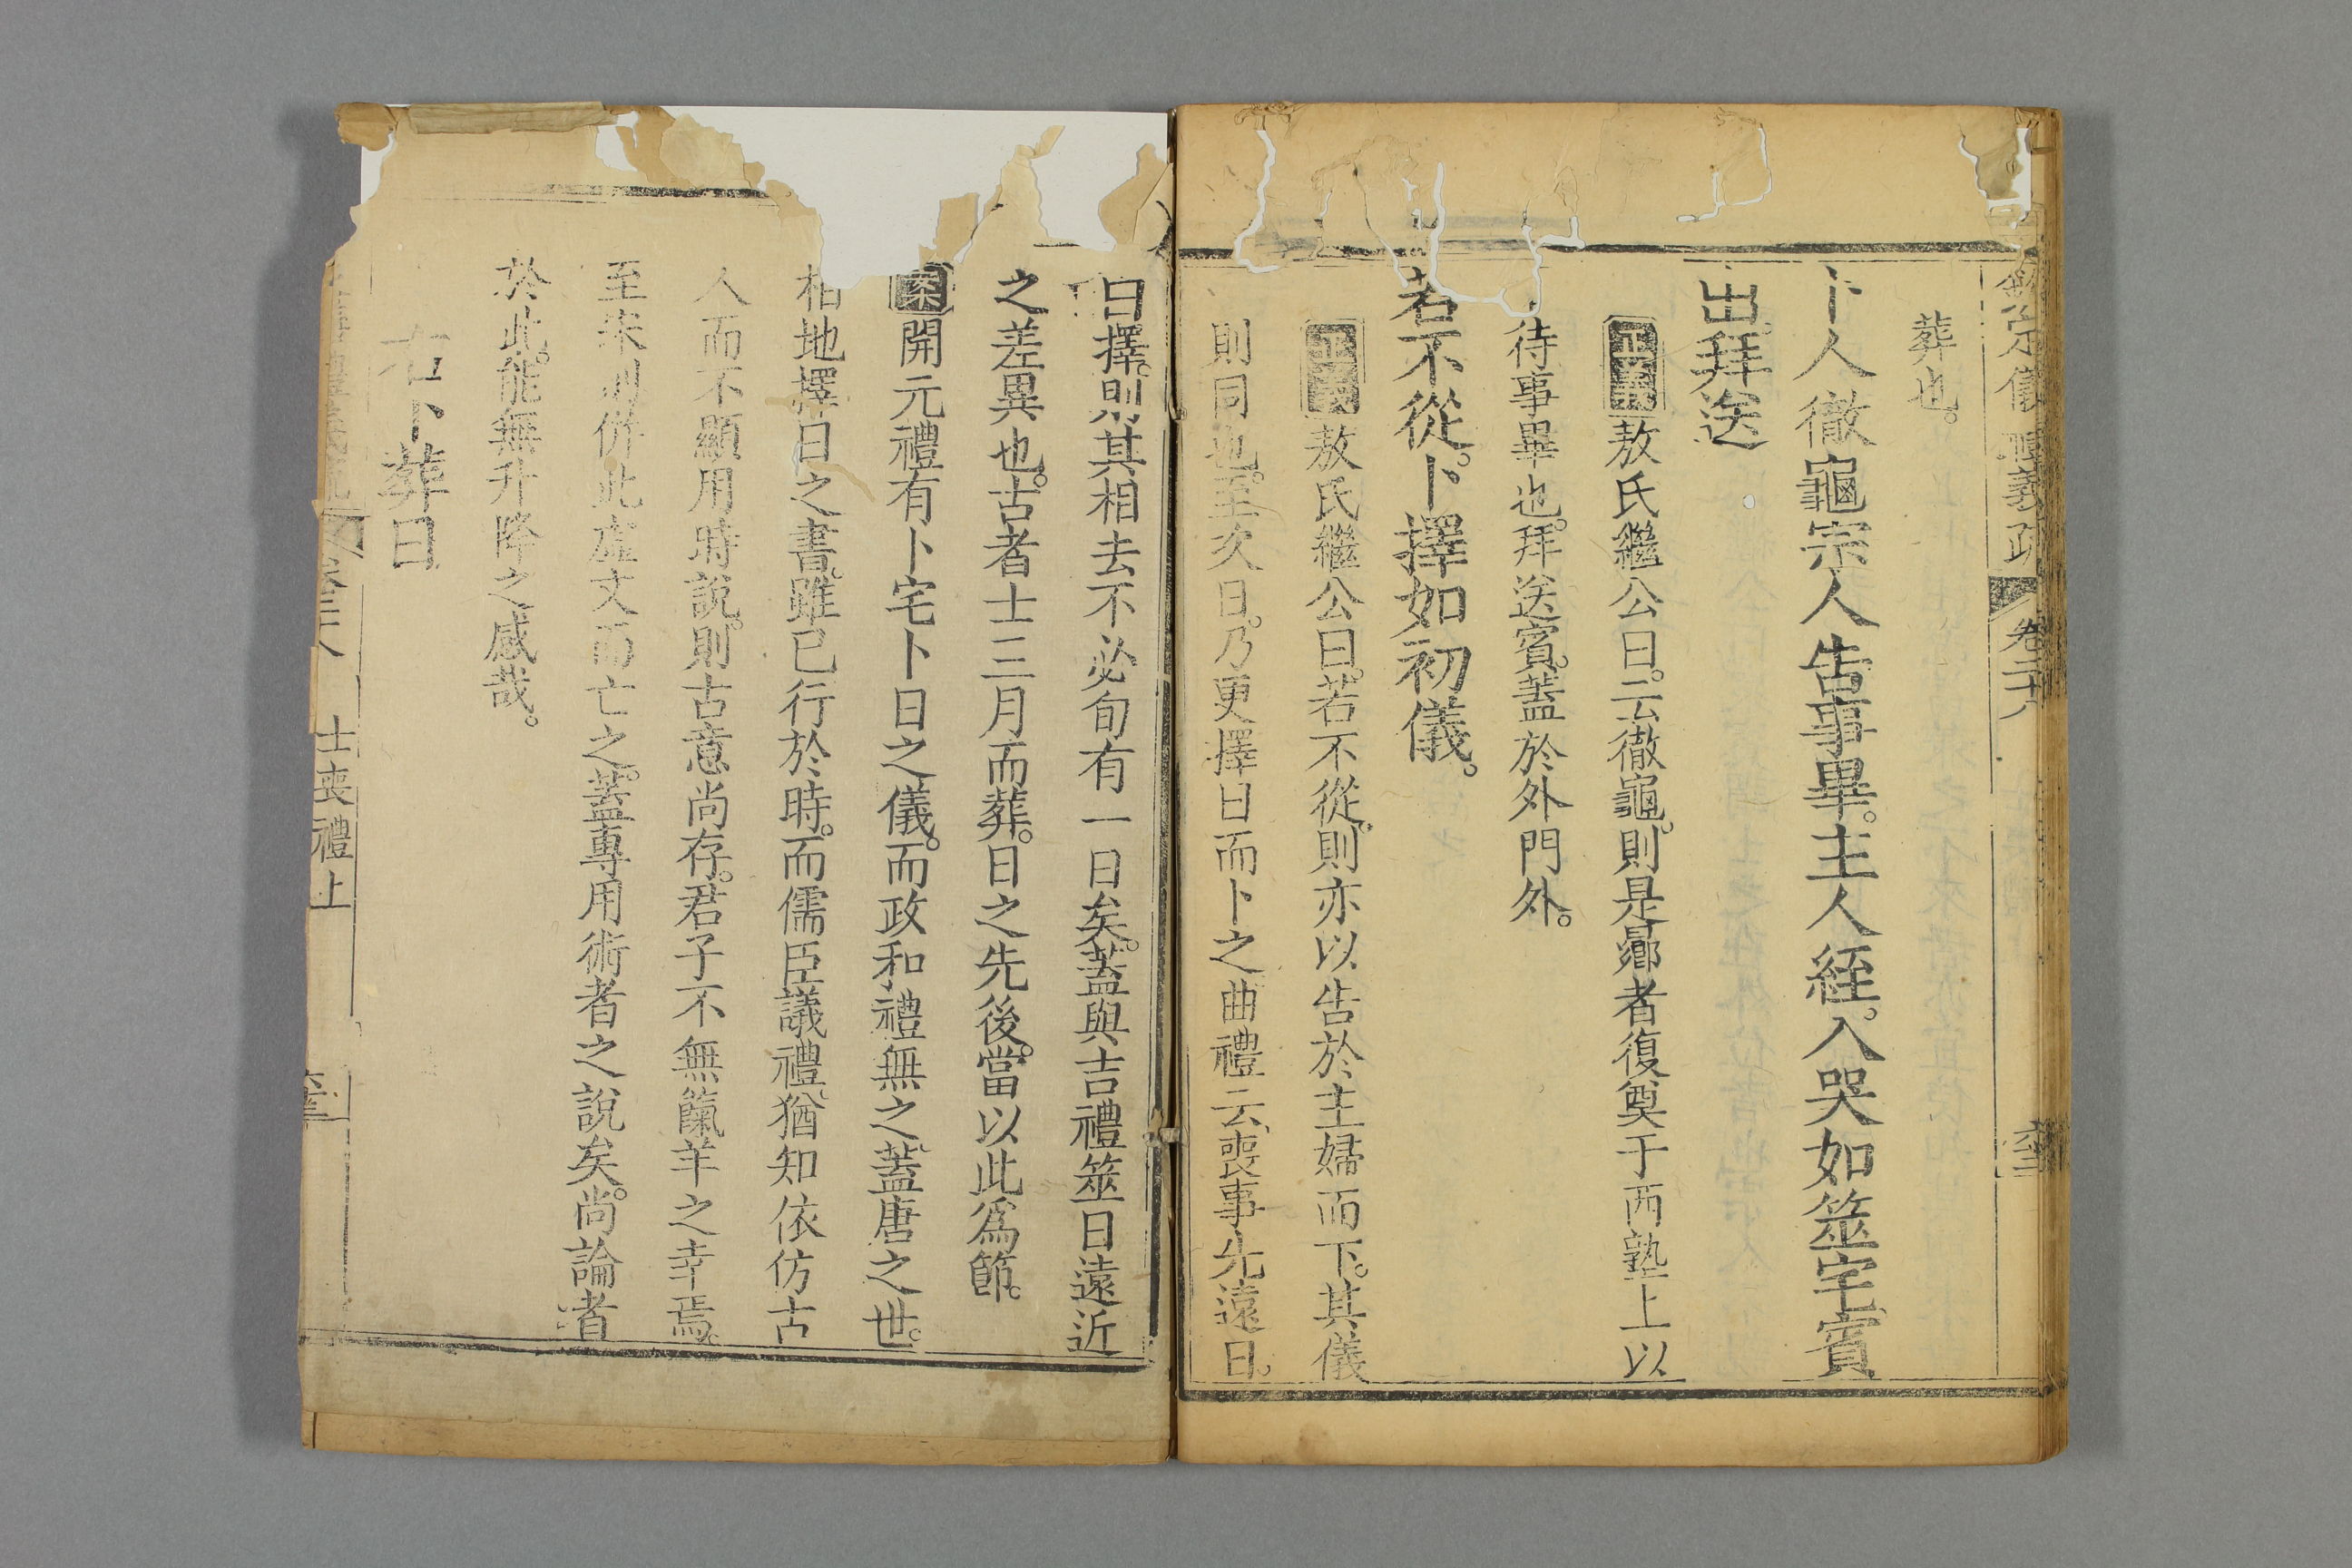 欽定儀禮義疏 卷二十八
葬也。
卜人徹龜宗人告事畢。主人絰。入哭如筮宅賓
出。拜送
正義敖氏繼公曰。云徹龜。則是曏者復奠于西塾上以
待事畢也。拜送賓。蓋於外門外。
若不從。卜擇如初儀。
正義敖氏繼公曰。若不從。則亦以告於主婦而下。其儀
則同也。至次日。乃更擇日而卜之曲禮云、喪事先遠日。
曰擇。則其相去不必旬有一日矣。蓋與吉禮筮日遠近
之差異也。古者士三月而葬。日之先後。當以此為節。
案開元禮有卜宅卜日之儀。而政和禮無之。蓋唐之世。
相地擇日之書。雖已行於時。而儒臣議禮。猶知依仿古
人而不顯用時說。則古意尚存。君子不無籣羊之幸焉。
至宋則併此虛文而亡之。蓋專用術者之說矣。尚論者
於此。能無升降之感哉。
右卜葬日
卷二十八 士喪禮上